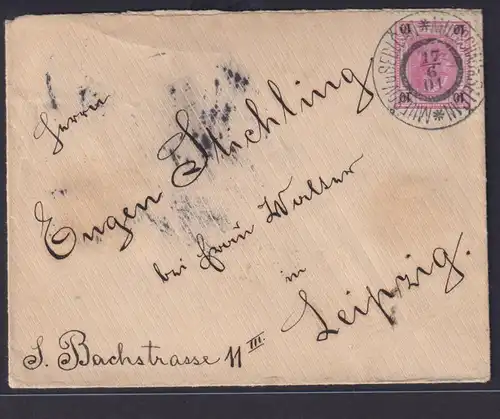 Herrn
Eugen Stichling
bei Frau Walter
in
Leipzig.
S. Bachstrasse 11 III
10 10
17
6
01
10 10